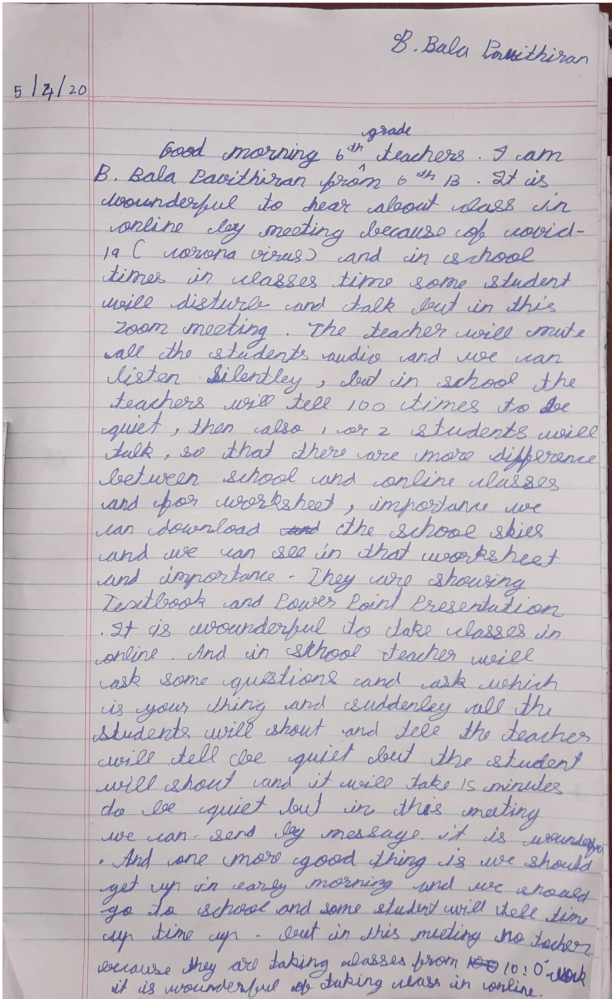 B. Bala Pavithiran
5/4/20
grade
Good morning 6th teachers. I am
B. Bala Pavithiran from 6th B. It is
wounderful to hear about class in
online by meeting because of covid-
19 ( corona virus) and in school
times in classes time some student
will disturb and talk but in this
zoom meeting. The teacher will mute
all the students audio and we can
listen silentley, but in school the
teachers will tell 100 times to be
quiet, then also 1 or 2 students will
talk, so that there are more difference
between school and online classes
and for worksheet, importance we
can download and the school skies
and we can see in that worksheet
and importance. They are showing
Textbook and Power Point Presentation
. It is wounderful to take classes in
online. And in school teacher will
ask some questions and ask which
is your thing and suddenley all the
students will shout and tell the teacher
will tell be quiet but the student
will shout and it will take 15 minutes
to be quiet but in this meeting
we can send by message. it is wounderful
. And one more good thing is we should
get up in early morning and we should
go to school and some student will tell time
up time up - but in this meeting no
because they are taking classes from 10:0
it is wounderful of taking class in online.